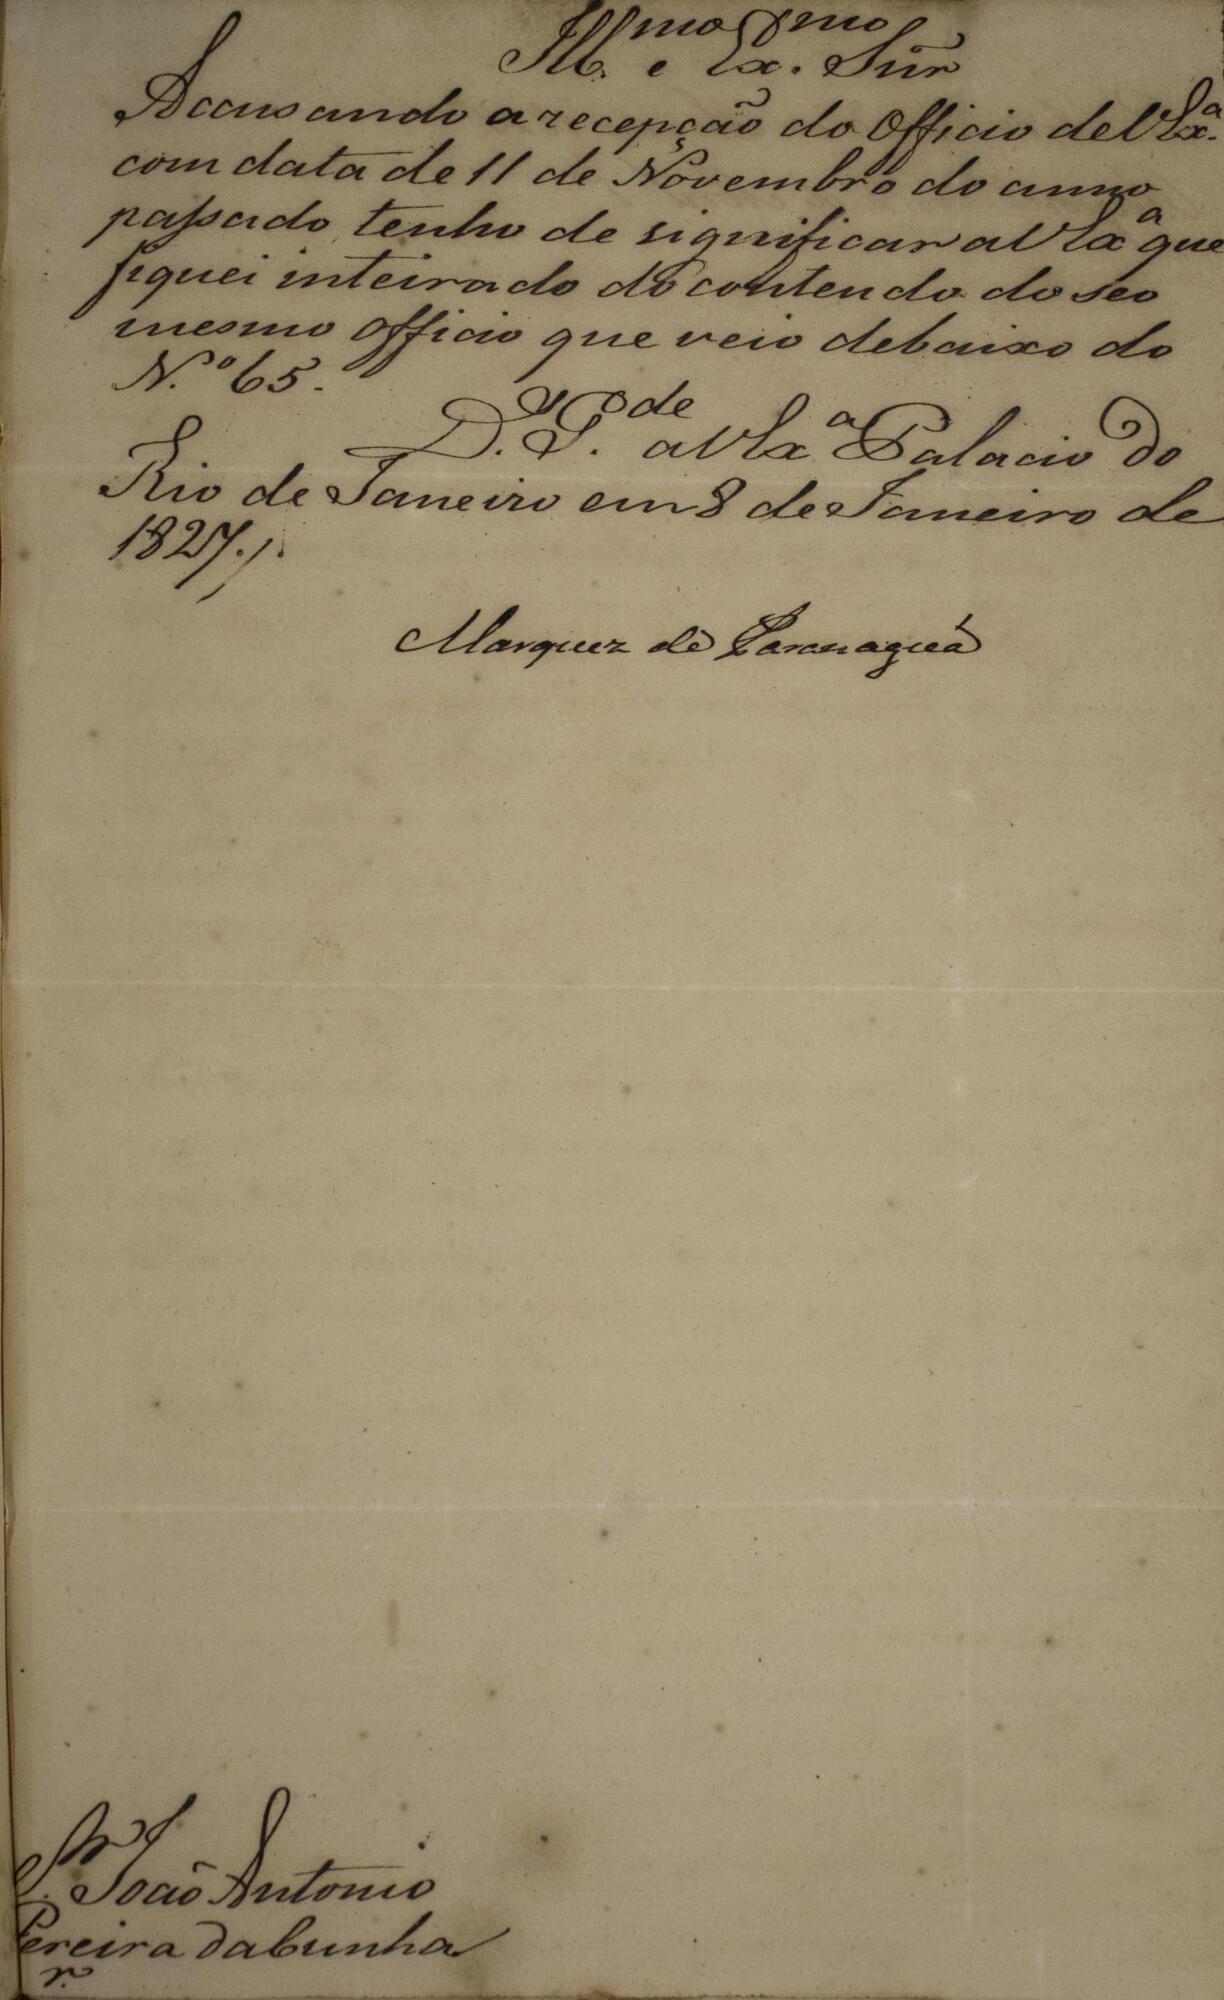 Ill.mo e Ex.mo Snr
Accusando a recepção do Officio de V Exª.
com data de 11 de Novembro do anno
passado tenho de significar a V Exª que
fiquei inteirado do contendo do seo
mesmo officio que veio debaixo do
N.º 65.
D.s G.de a V Exª Palacio do
Rio de Janeiro em 8 de Janeiro de
1827./.
Marquez de Paranaguá
S.r João Antonio
Pereira da Cunha